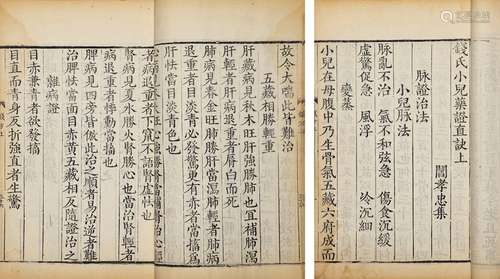 錢氏小兒藥證直訣上
閻孝忠集
脉證治法
小兒脉法
脉亂不治 氣不和弦急 傷食沉緩
虛驚促急 風浮 冷沉細
變蒸
小兒在母腹中乃生骨氣五藏六府成而
故令大喘此皆難治
五藏相勝輕重
肝藏病見秋木旺肝強勝肺也宜補肺瀉
肝輕者肝病退重者唇白而死
肺病見春金旺肺勝肝當瀉肺輕者肺病
退重者目淡青必發驚更有赤者當搐為
肝怯當目淡青色也
心病見冬火旺心強勝腎當補腎治心輕者
病退重者下竄不語腎虛怯也
腎病見夏水勝火腎勝心也當治腎輕者
病退重者悸動當搐也
脾病見四旁皆倣此治之順者易治逆者難
治脾怯當面目赤黃五藏相反隨證治之
雜病證
目赤兼青者欲發搐
目直而青身反折強直者生驚